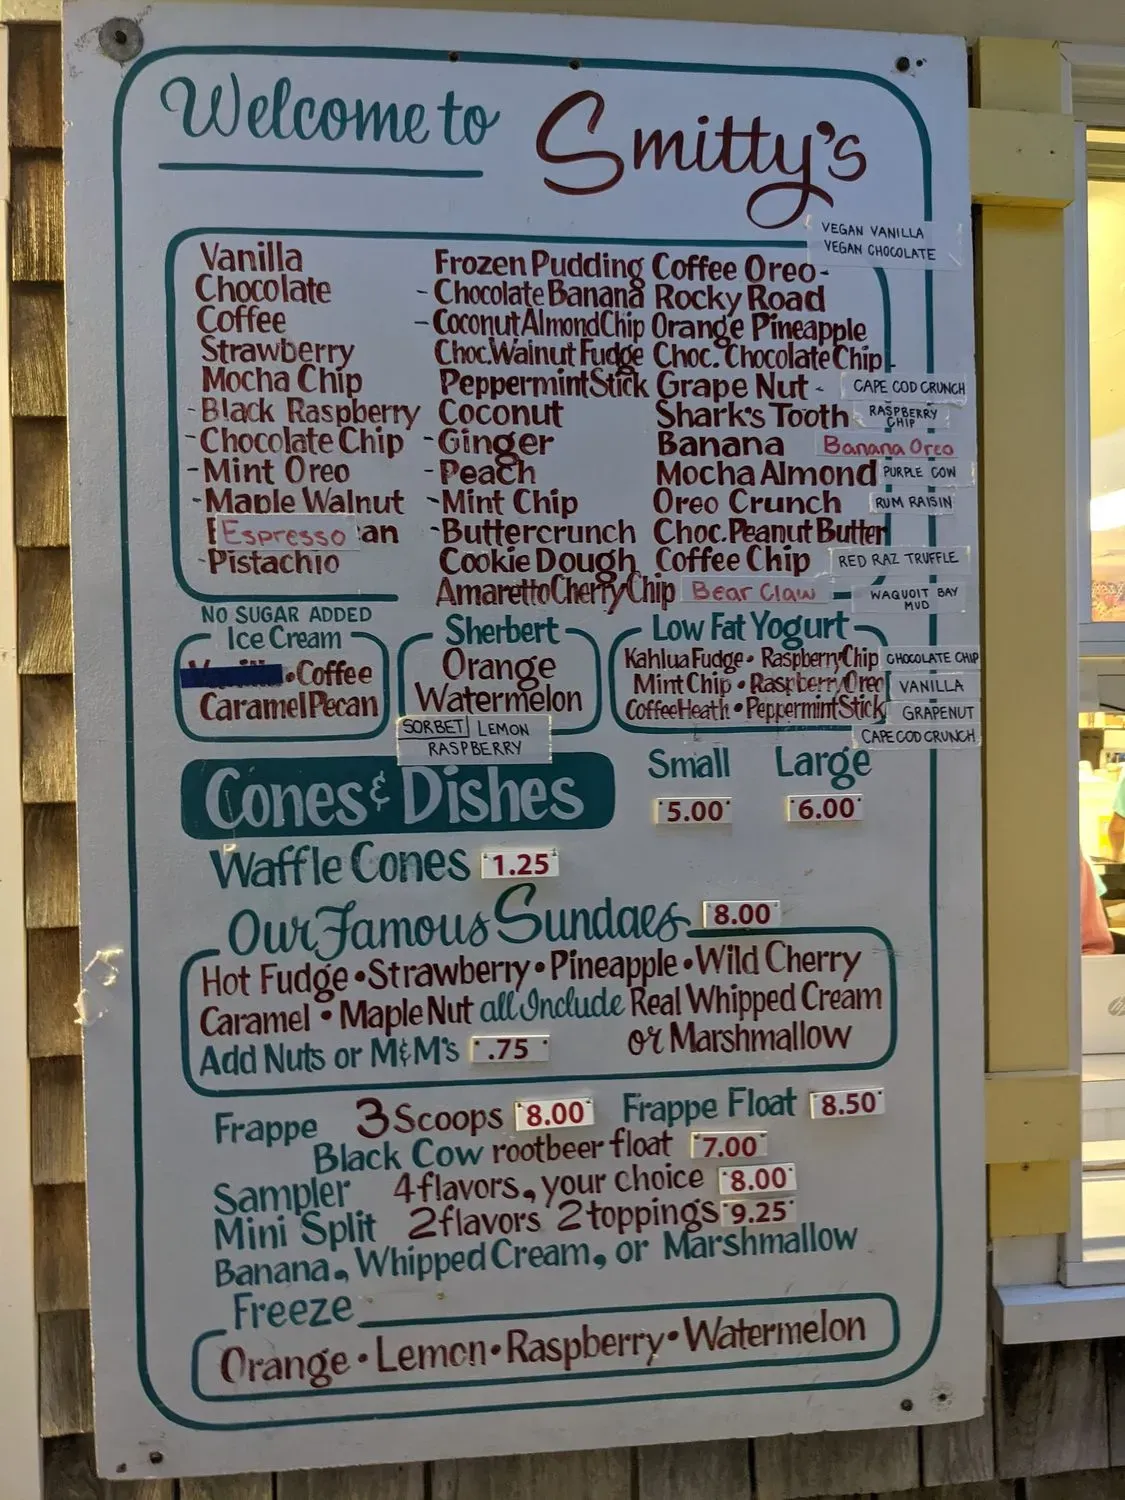 Welcome to Smitty's
VEGAN VANILLA
VEGAN CHOCOLATE
Vanilla
Chocolate
Coffee
Strawberry
Mocha Chip
- Black Raspberry
- Chocolate Chip
- Mint Oreo
- Maple Walnut
Espresso an
- Pistachio
Frozen Pudding
- Chocolate Banana
- Coconut Almond Chip
Choc. Walnut Fudge
Peppermint Stick
Coconut
- Ginger
- Peach
- Mint Chip
- Buttercrunch
Cookie Dough
Amaretto Cherry Chip
Coffee Oreo-
Rocky Road
Orange Pineapple
Choc. Chocolate Chip -
Grape Nut -
Shark's Tooth
Banana
Mocha Almond
Oreo Crunch
Choc. Peanut Butter
Coffee Chip
Bear Claw
CAPE COD CRUNCH
RASPBERRY
CHIP
Banana Oreo
PURPLE COW
RUM RAISIN
RED RAZ TRUFFLE
WAQUOIT BAY
MUD
NO SUGAR ADDED
Ice Cream
• Coffee
Caramel Pecan
Sherbert
Orange
Watermelon
SORBET LEMON
RASPBERRY
Low Fat Yogurt
Kahlua Fudge • Raspberry Chip
Mint Chip • Raspberry Oreo
Coffee Heath • Peppermint Stick
CHOCOLATE CHIP
VANILLA
GRAPENUT
CAPE COD CRUNCH
Small Large
Cones & Dishes 5.00 6.00
Waffle Cones 1.25
Our Famous Sundaes 8.00
Hot Fudge • Strawberry • Pineapple • Wild Cherry
Caramel • Maple Nut all Include Real Whipped Cream
Add Nuts or M&M's .75 or Marshmallow
Frappe 3 Scoops 8.00 Frappe Float 8.50
Black Cow rootbeer float 7.00
Sampler 4 flavors, your choice 8.00
Mini Split 2 flavors 2 toppings 9.25
Banana, Whipped Cream, or Marshmallow
Freeze
Orange • Lemon • Raspberry • Watermelon